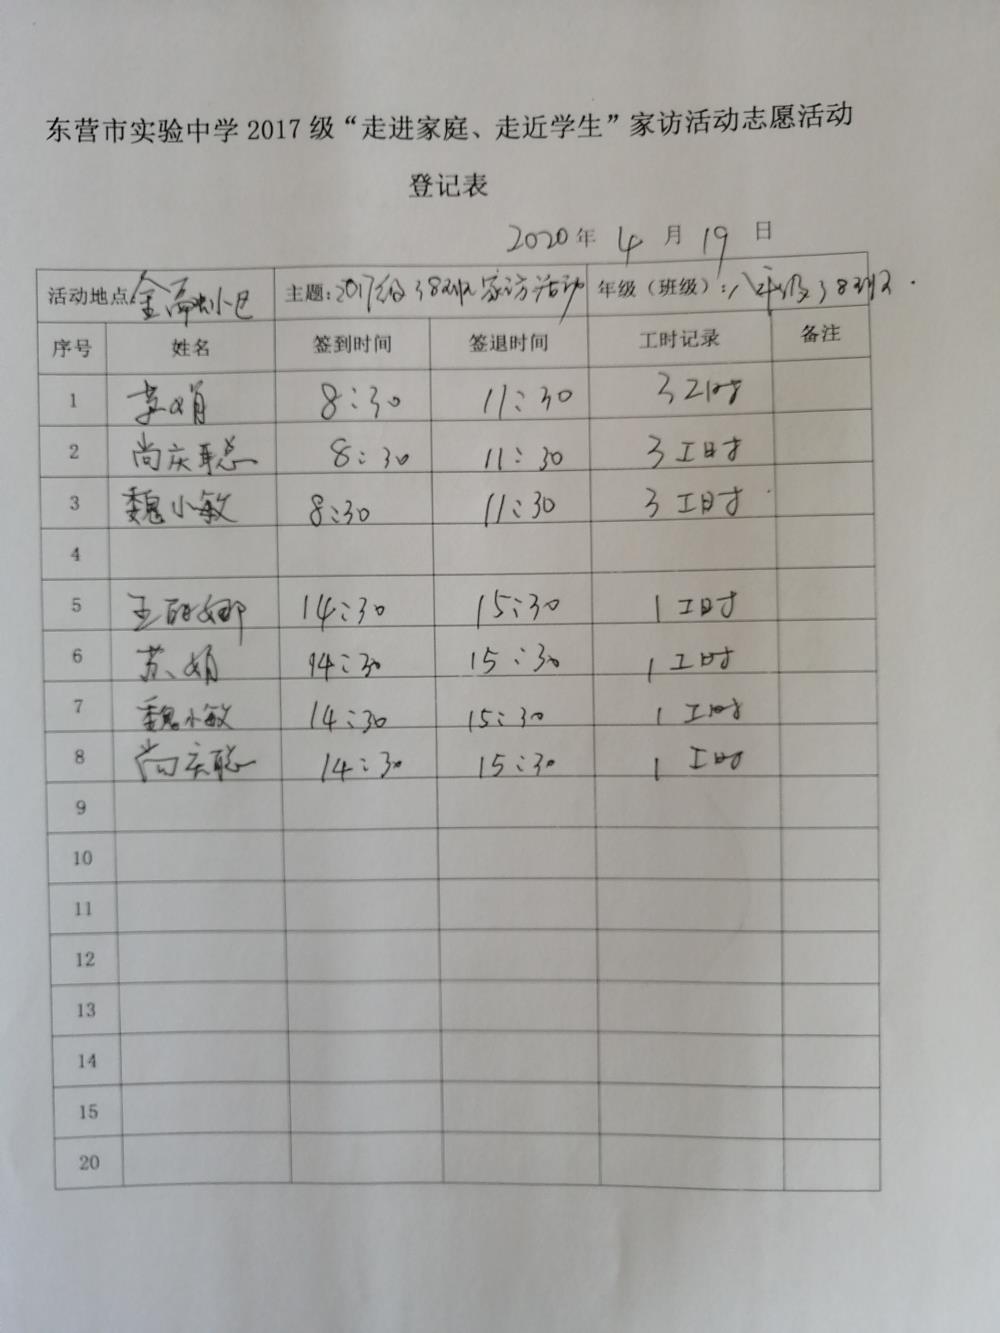 东营市实验中学2017级“走进家庭、走近学生”家访活动志愿活动
登记表
2020年 4 月 19 日
活动地点: 小区 主题:2017级38班家访活动 年级（班级）:八年级38班.
序号 姓名 签到时间 签退时间 工时记录 备注
1 苏娟 8:30 11:30 3工时
2 尚庆聪 8:30 11:30 3工时
3 魏小敏 8:30 11:30 3工时
4
5 王丽娜 14:30 15:30 1工时
6 苏娟 14:30 15:30 1工时
7 魏小敏 14:30 15:30 1工时
8 尚庆聪 14:30 15:30 1工时
9
10
11
12
13
14
15
20